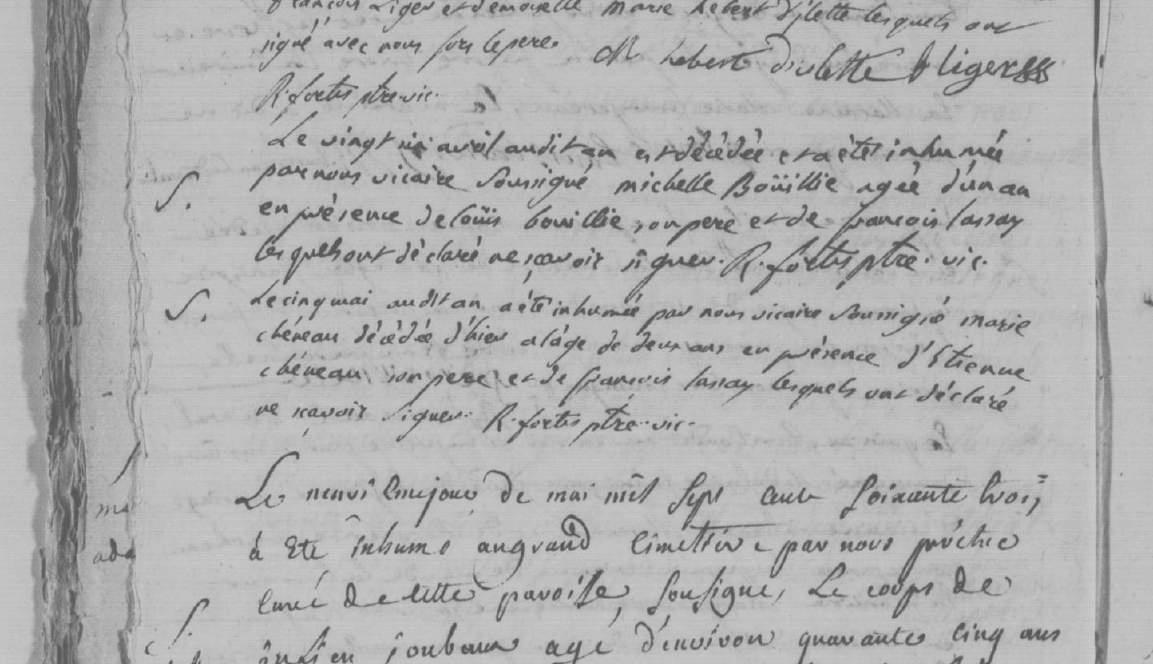 françois Liger et demoiselle marie hebert d'ilette lesquels ont
signé avec nous fors le pere. M hebert diolette liger
R. fortis ptre. vic.
Le vingt avril audit an est décédée et a été inhumée
S. par nous vicaire soussigné michelle Boüillie agée d'un an
en présence de loüis bouillie son pere et de françois lassay
lesquels ont déclaré ne sçavoir signer. R. fortis ptre. vic.
S. Le cinq mai audit an a été inhumée par nous vicaire soussigné marie
chéneau décédée d'hier a l'âge de deux ans en présence d'Etienne
chéneau son pere et de françois lassay lesquels ont déclaré
ne sçavoir signer. R. fortis ptre. vic.
Le neuviemejour de mai mil sept cent soixante trois
à Eté inhumé augrand Cimetiére par nous prêtre
Curé de cette paroisse soussigné, Le corps de
joubeau agé d'environ quarante cinq ans